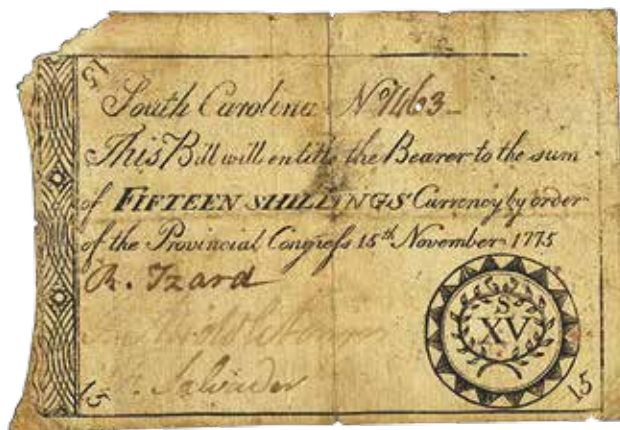 15
South Carolina No 1463
This Bill will entitle the Bearer to the sum
of FIFTEEN SHILLINGS Currency by order
of the Provincial Congress 15th November 1775
R. Izard
Salvador
S
XV
15
15